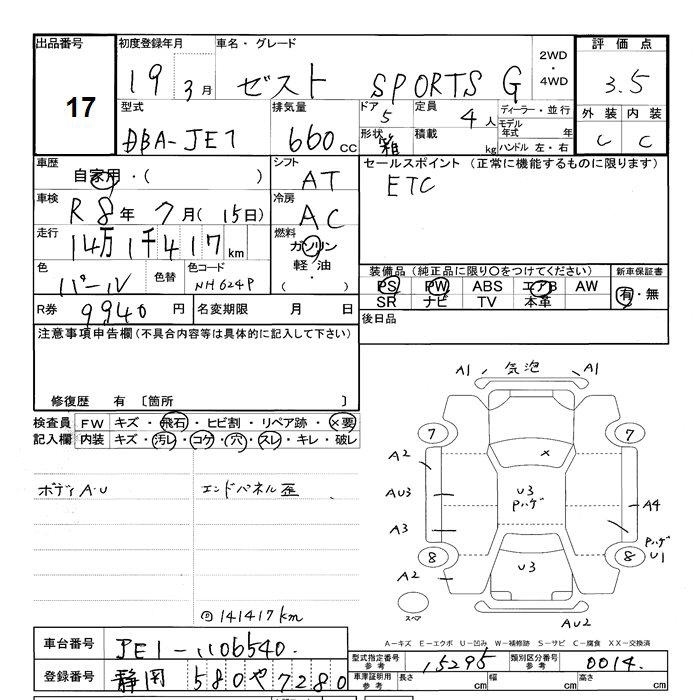 出品番号 初度登録年月 車名・グレード 評価点
17 19 3月 ゼスト SPORTS G 2WD・4WD 3.5
型式 排気量 ドア 5 定員 4人 ディーラー・並行 外装 内装
DBA-JE1 660cc 形状 箱 積載 kg モデル年式 年 ハンドル 左・右 C C
車歴 自家用・( ) シフト AT セールスポイント (正常に機能するものに限ります)
車検 R8年7月(15日) 冷房 AC ETC
走行 14万1千417km 燃料 ガソリン
軽油
色 パール 色替 色コード NH624P ・( ) 装備品(純正品に限り○をつけてください) 新車保証書
PS PW ABS エアB AW 有・無
SR ナビ TV 本革
R券 9940円 名変期限 月 日 後日品
注意事項申告欄(不具合内容等は具体的に記入して下さい)
修復歴 有 〔箇所 〕
検査員 FW キズ・飛石・ヒビ割・リペア跡・×要
記入欄 内装 キズ・汚レ・コゲ・穴・スレ・キレ・破レ
ボディA・U エンドパネル歪
走141417km
A1 気泡 A1
7 7
A2 ×
AU3 U3 A4
Pハゲ
A3 Pハゲ
8 8 U1
A2 U3
スペア AU2
A－キズ E－エクボ U－凹み W－補修跡 S－サビ C－腐食 XX－交換済
車台番号 JE1-1106540. 型式指定番号 参考 15295 類別区分番号 参考 0014.
登録番号 静岡 580や7280 車庫証明用 参考 長さ cm 幅 cm 高さ cm